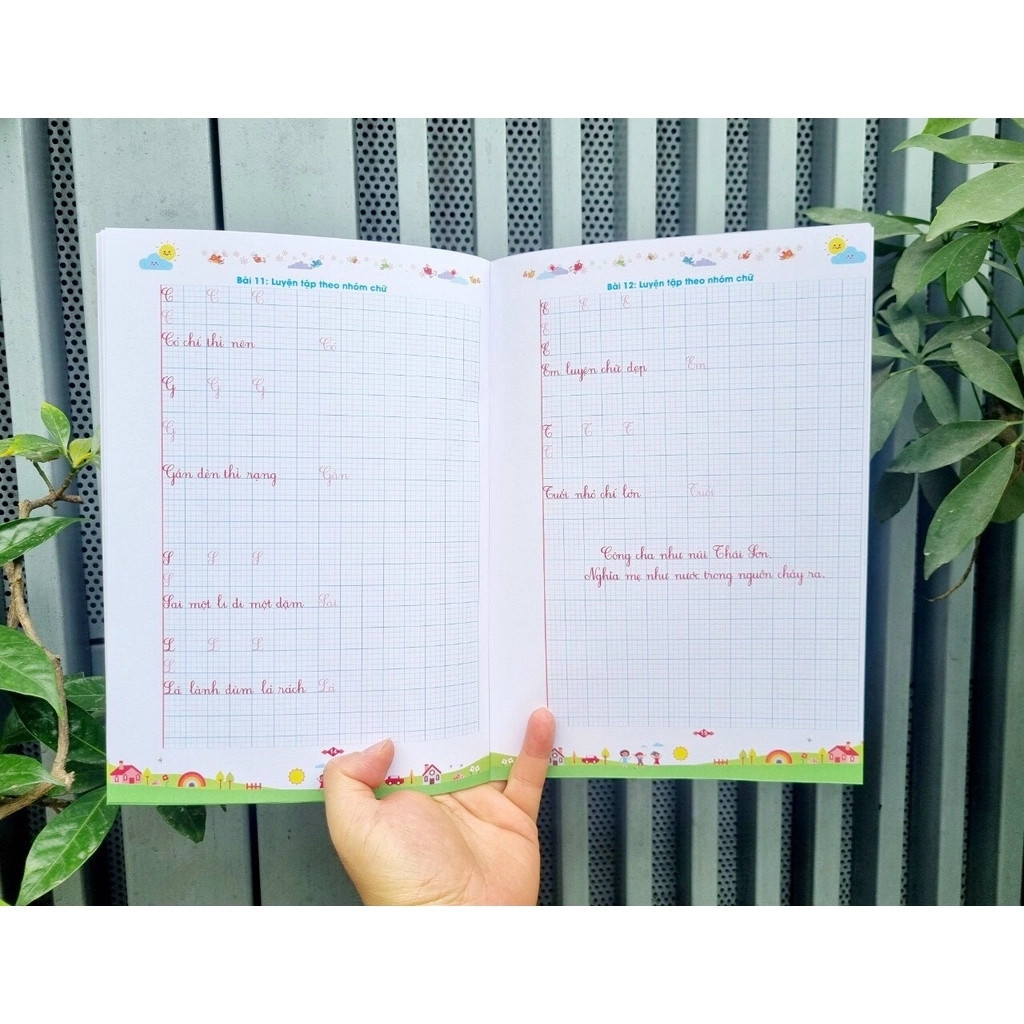 Bài 11: Luyện tập theo nhóm chữ
C C C
C
Có chí thì nên Có
G G G
G
Gần đèn thì rạng Gần
S S S
S
Sai một li đi một dặm Sai
L L L
L
Lá lành đùm lá rách Lá
14
Bài 12: Luyện tập theo nhóm chữ
E E E
E
Ê
Em luyện chữ đẹp Em
T T T
T
Tuổi nhỏ chí lớn Tuổi
Công cha như núi Thái Sơn.
Nghĩa mẹ như nước trong nguồn chảy ra.
15